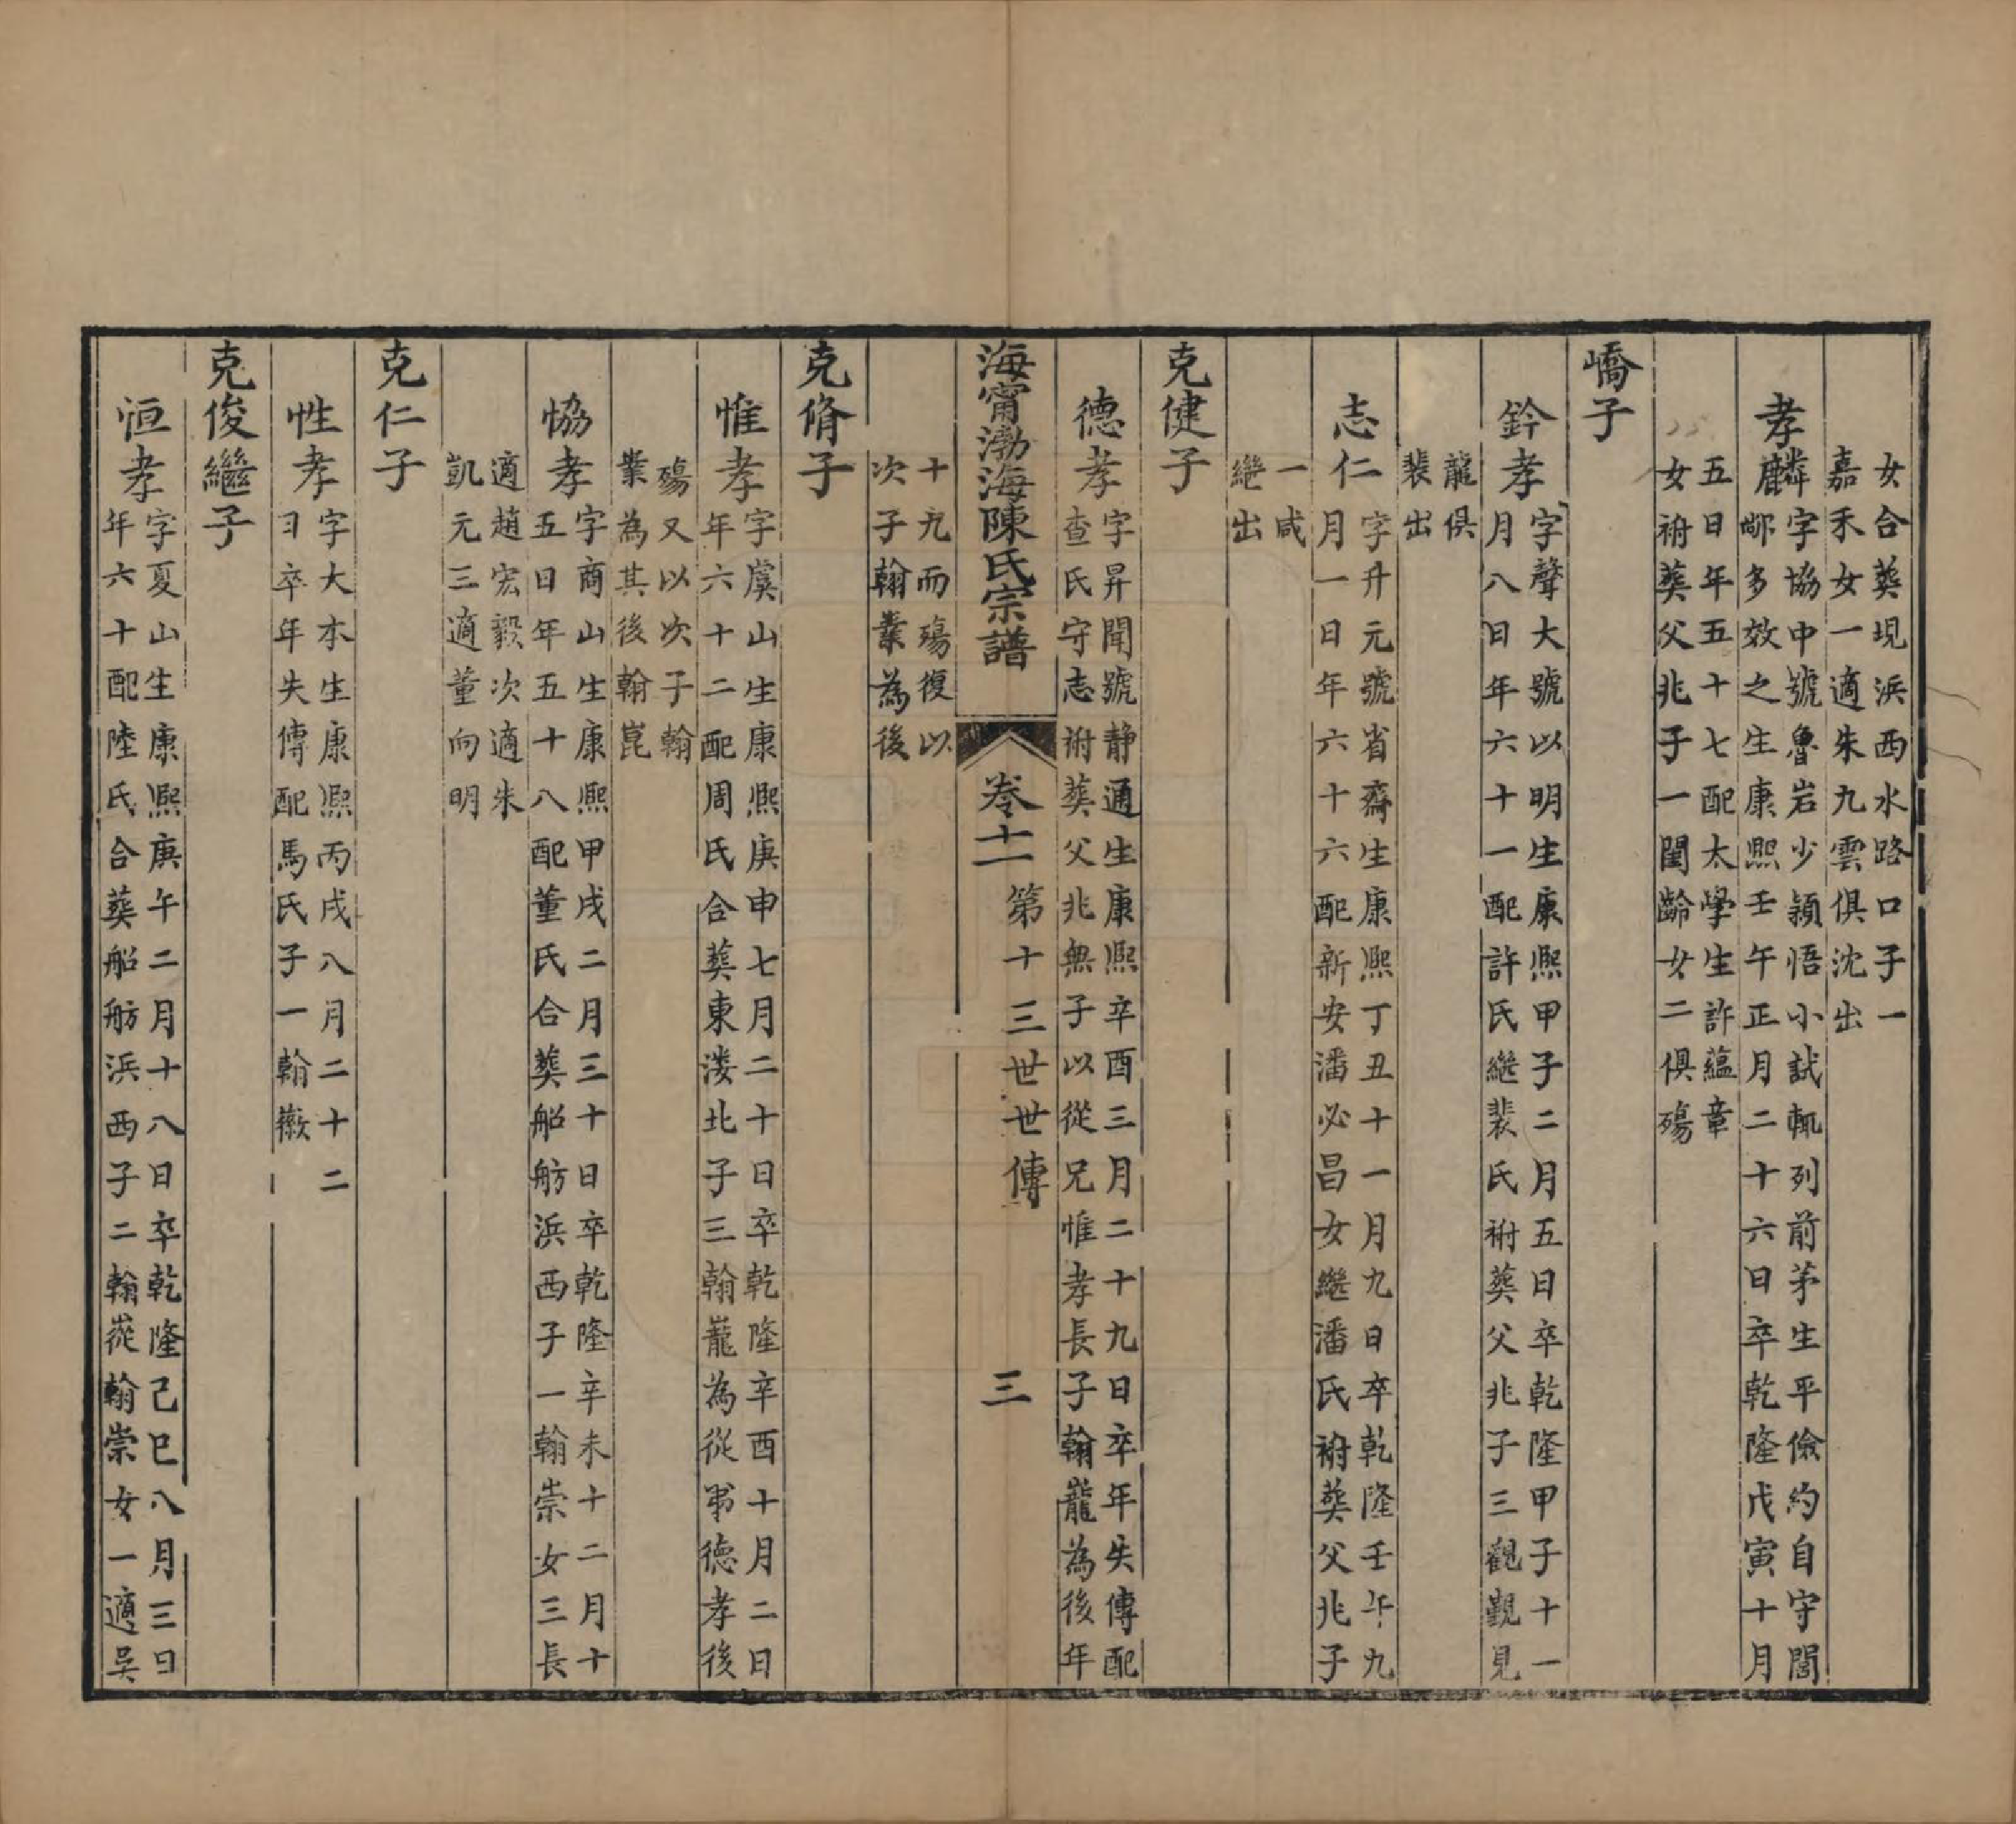 女合葬垷浜西水路口子一
嘉禾女一適朱九雲俱沈出
孝麟字協中號魯岩少穎悟小試輒列前茅生平儉約自守閭
鄰多效之生康熙壬午正月二十六日卒乾隆戊寅十月
五日年五十七配太學生許蘊章
女祔葬父兆子一閏齡女二俱殤
嶠子
鈐孝字聲大號以明生康熙甲子二月五日卒乾隆甲子十一
月八日年六十一配許氏繼裴氏祔葬父兆子三觀觀見
龍俱
裴出
志仁字升元號省齋生康熙丁丑十一月九日卒乾隆壬午九
月一日年六十六配新安潘必昌女繼潘氏祔葬父兆子
一咸
繼出
克健子
德孝字昇聞號靜通生康熙辛酉三月二十九日卒年失傳配
查氏守志祔葬父兆無子以從兄惟孝長子翰巃為後年
海甯渤海陳氏宗譜 卷十一 第十三世世傳 三
十九而殤復以
次子翰業為後
克脩子
惟孝字虞山生康熙庚申七月二十日卒乾隆辛酉十月二日
年六十二配周氏合葬東漊北子三翰巃為從弟德孝後
殤又以次子翰
業為其後翰崑
恊孝字商山生康熙甲戌二月三十日卒乾隆辛未十二月十
五日年五十八配董氏合葬船舫浜西子一翰崇女三長
適趙宏毅次適朱
凱元三適董向明
克仁子
性孝字大本生康熙丙戌八月二十二
日卒年失傳配馬氏子一翰徽
克俊繼子
恒孝字夏山生康熙庚午二月十八日卒乾隆己巳八月三日
年六十配陸氏合葬船舫浜西子二翰嵸翰崇女一適吳